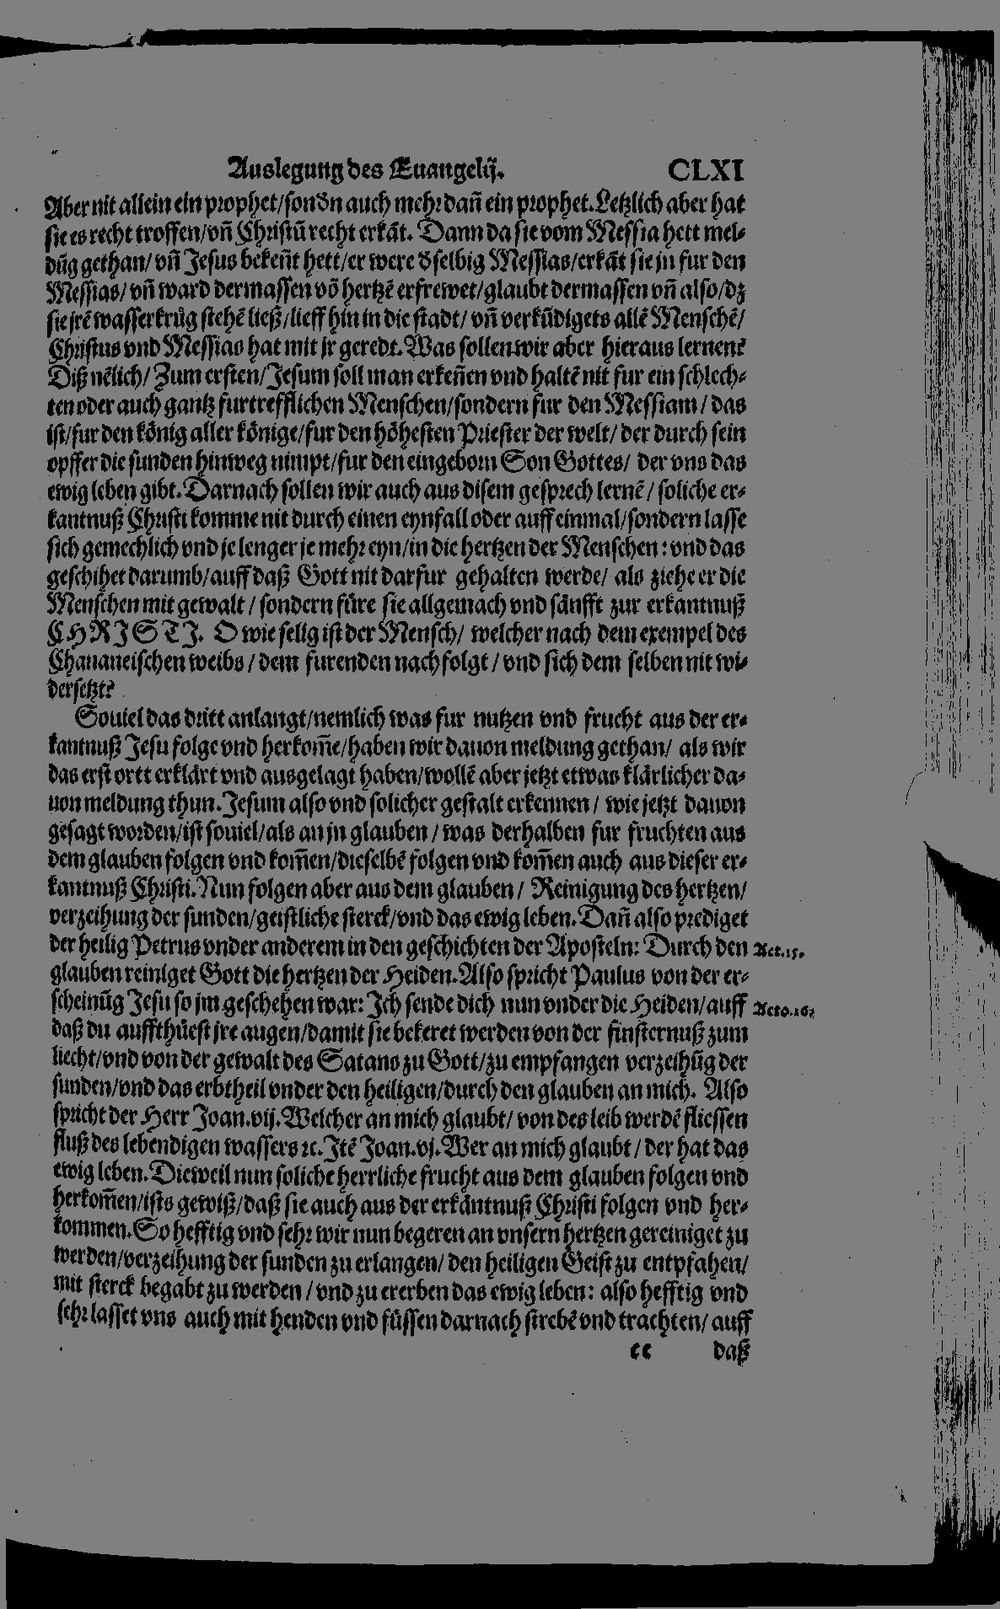 Auslegung des Euangelij. CLXI
Aber nit allein ein prophet/sonďn auch mehr dañ ein prophet. Letzlich aber hat
sie es recht troffen/vñ Christū recht erkāt. Dann da sie vom Messia hett mel-
dūg gethan/ vñ Jesus bekeñt hett/er were ď selbig Messias/erkāt sie jn fur den
Messias/ vñ ward dermassen vō hertzē erfrewet/glaubt dermassen vñ also/dz
sie jrē wasserkrūg stehē ließ/lieff hin in die stadt/ vñ verkūdigets allē Menschē/
Christus vnd Messias hat mit jr geredt. Was sollen wir aber hieraus lernen?
Diß nēlich/ Zum ersten/Jesum soll man erkeñen vnd haltē nit fur ein schlech-
ten oder auch gantz furtrefflichen Menschen/sondern fur den Messiam/ das
ist/fur den könig aller könige/fur den höhesten Priester der welt/ der durch sein
opffer die sunden hinweg nimpt/fur den eingeborn Son Gottes/ der vns das
ewig leben gibt. Darnach sollen wir auch aus disem gesprech lernē/ soliche er-
kantnuß Christi komme nit durch einen eynfall oder auff einmal/sondern lasse
sich gemechlich vnd je lenger je mehr eyn/in die hertzen der Menschen: vnd das
geschihet darumb/auff daß Gott nit darfur gehalten werde/ als ziehe er die
Menschen mit gewalt/ sondern füre sie allgemach vnd sänfft zur erkantnuß
CHRISTI. O wie selig ist der Mensch/ welcher nach dem exempel des
Chananeischen weibs/ dem furenden nachfolgt/ vnd sich dem selben nit wi-
dersetzt?
Souiel das dritt anlangt/nemlich was fur nutzen vnd frucht aus der er-
kantnuß Jesu folge vnd herkom̄e/haben wir dauon meldung gethan/ als wir
das erst ortt erklärt vnd ausgelagt haben/wollē aber jetzt etwas klärlicher da-
uon meldung thun. Jesum also vnd solicher gestalt erkennen/ wie jetzt dauon
gesagt worden/ist souiel/als an jn glauben/ was derhalben fur fruchten aus
dem glauben folgen vnd kom̄en/dieselbē folgen vnd kom̄en auch aus dieser er-
kantnuß Christi. Nun folgen aber aus dem glauben/ Reinigung des hertzen/
verzeihung der sunden/geistliche sterck/vnd das ewig leben. Dañ also prediget
der heilig Petrus vnder anderem in den geschichten der Aposteln: Durch den Act.15.
glauben reiniget Gott die hertzen der Heiden. Also spricht Paulus von der er-
scheinūg Jesu so jm geschehen war: Ich sende dich nun vnder die Heiden/auff Acto.26.
daß du auffthüest jre augen/damit sie bekeret werden von der finsternuß zum
liecht/vnd von der gewalt des Satans zu Gott/zu empfangen verzeihūg der
sunden/vnd das erbtheil vnder den heiligen/durch den glauben an mich. Also
spricht der Herr Joan.vij. Welcher an mich glaubt/ von des leib werdē fliessen
fluß des lebendigen wassers ꝛc. Itē Joan.vj. Wer an mich glaubt/ der hat das
ewig leben. Dieweil nun soliche herrliche frucht aus dem glauben folgen vnd
herkom̄en/ists gewiß/daß sie auch aus der erkäntnuß Christi folgen vnd her-
kommen. So hefftig vnd sehr wir nun begeren an vnsern hertzen gereiniget zu
werden/verzeihung der sunden zu erlangen/ den heiligen Geist zu entpfahen/
mit sterck begabt zu werden/ vnd zu ererben das ewig leben: also hefftig vnd
sehr lasset vns auch mit henden vnd füssen darnach strebē vnd trachten/ auff
cc daß